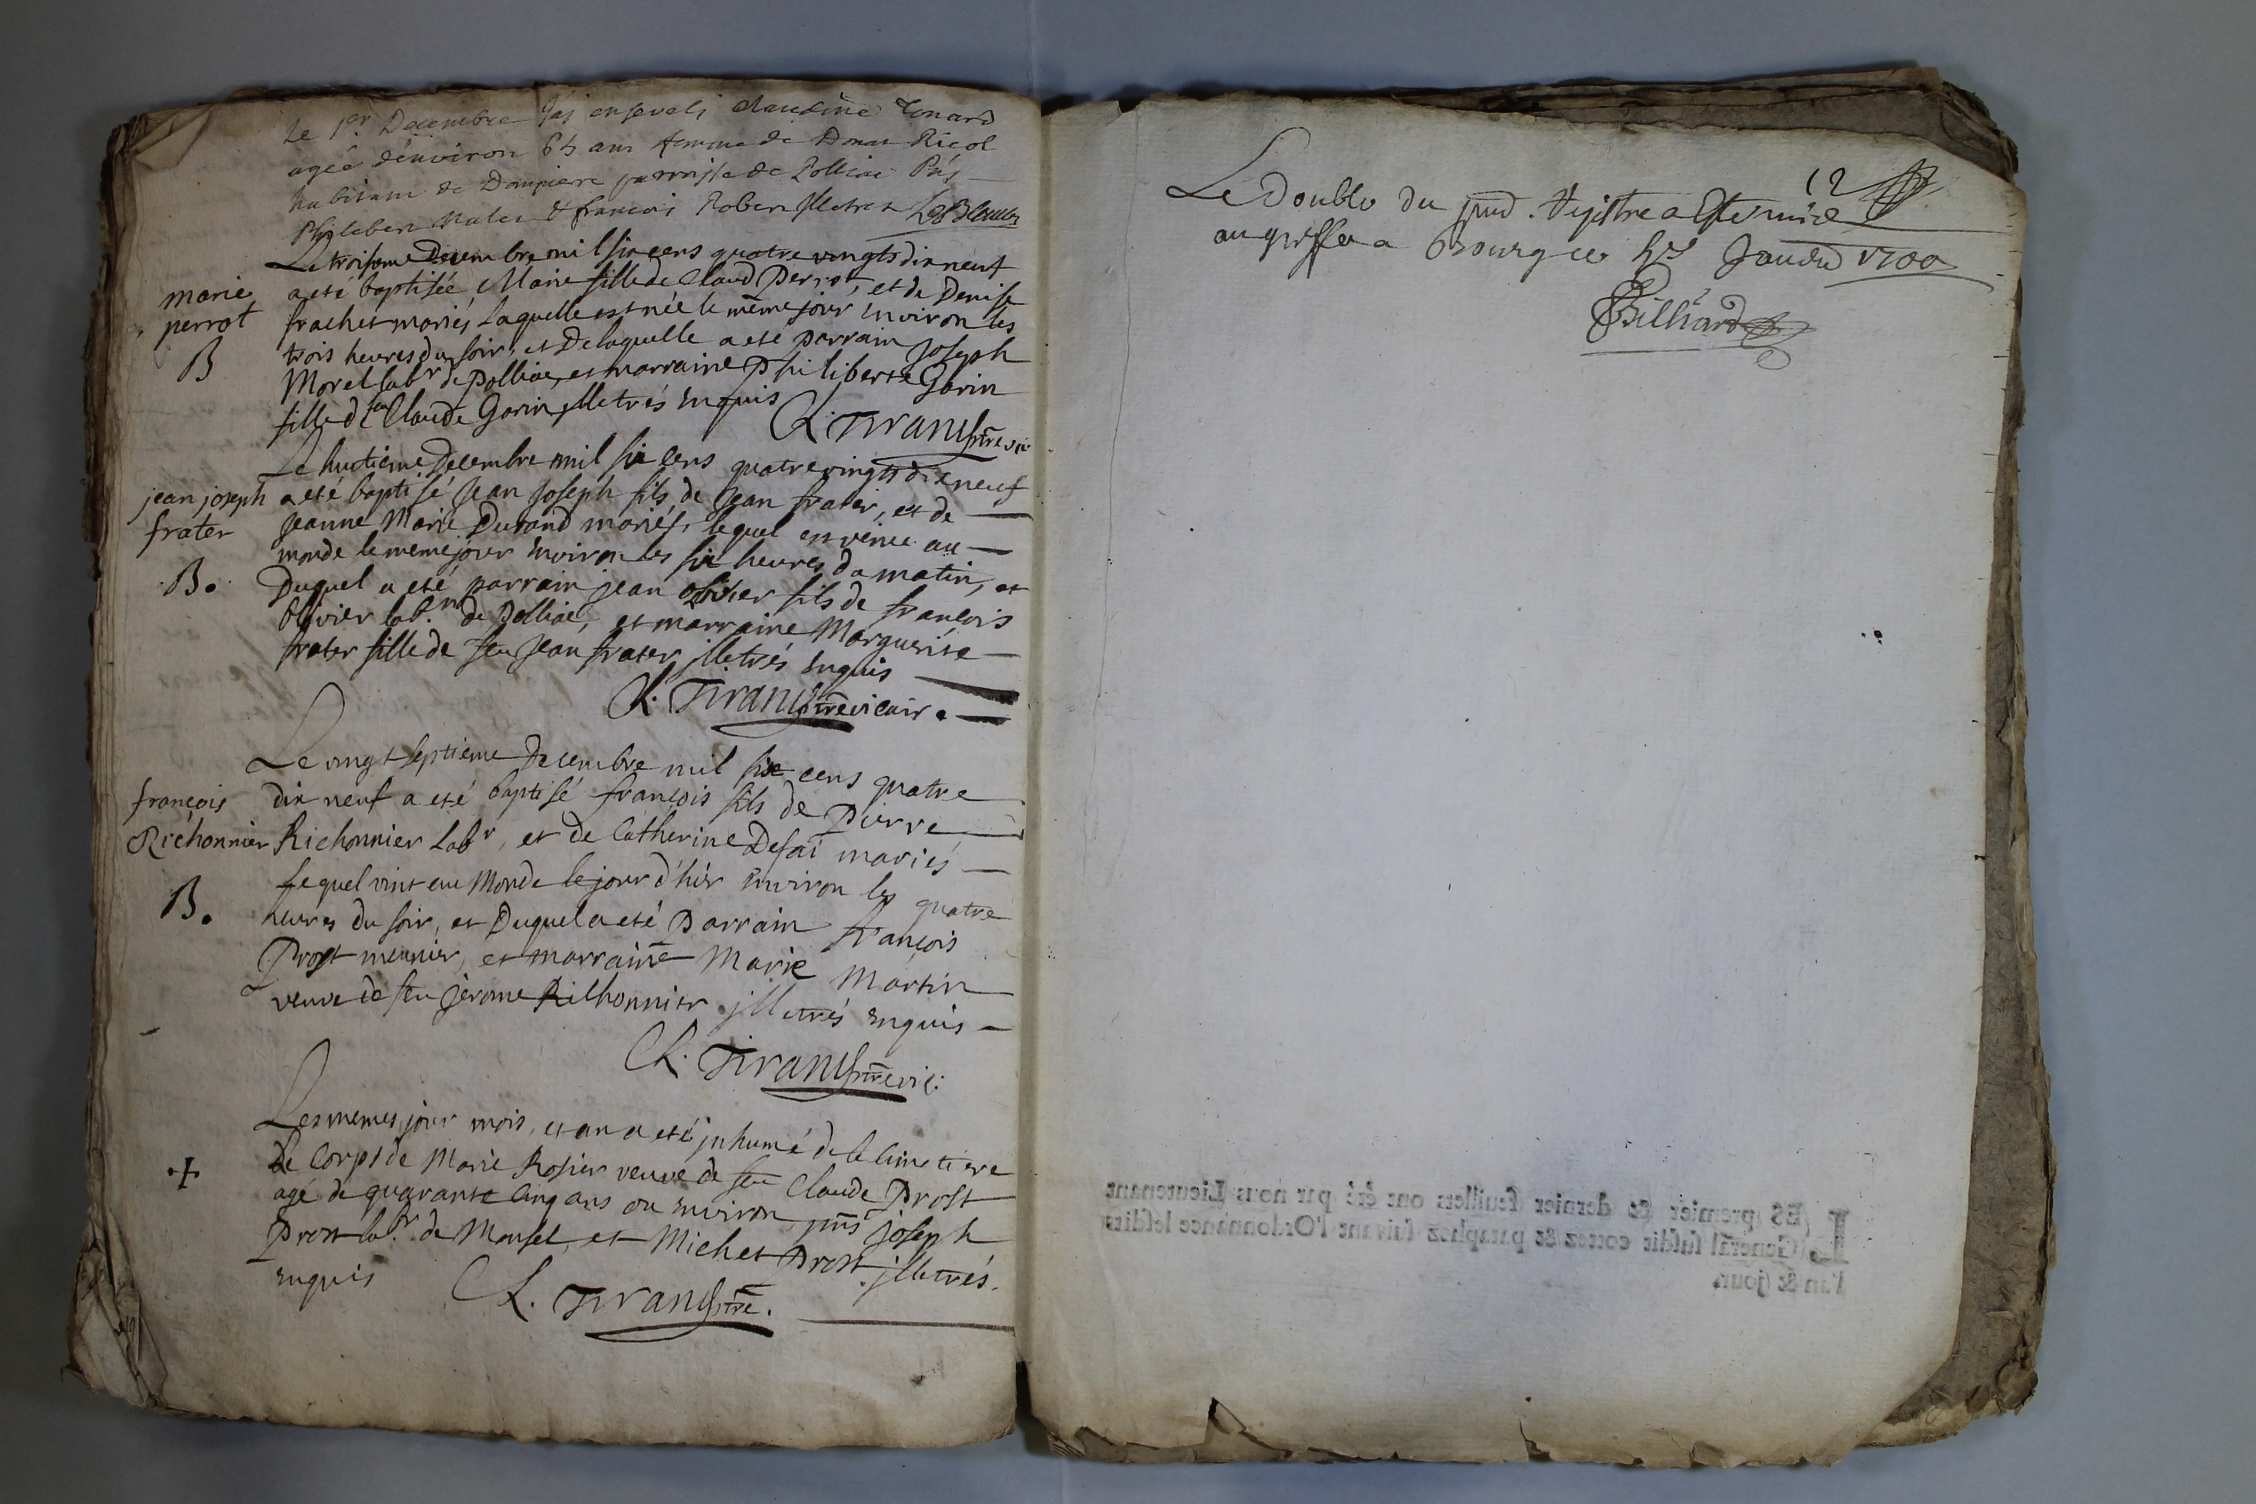 Le 1er Decembre j'ay enseveli claudine
agée d'environ 65 ans femme de Donat Ricol
habitant de Dompierre parroisse de Polliac Pñs
Philibert et françois Robert illetres
Le troisieme Decembre mil six cens quatre vingts dix neuf
marie
perrot
B
a eté baptisée Marie fille de Claud Perrot, et de Denise
frachet mariés laquelle est née le même jour environ les
trois heures du soir, et De laquelle a eté parrain Joseph
Morel labr de Polliac, et marraine Philiberte Gorin
fille de feu Claude Gorin illetrés enquis
C. Tirand ptre vic
Le huitieme Decembre mil six cens quatre vingts dix neuf
jean joseph
frater
B.
a eté baptisé Jean Joseph fils de Jean frater, et de
Jeanne Marie Durand mariés, lequel est venu au
monde le meme jour environ les six heures du matin, et
Duquel a eté parrain jean olivier fils de francois
Olivier labr. de Polliac, et marraine Marguerite
frater fille de feu Jean frater illetrés enquis
C. Tirand ptre vicaire
Le vingt septieme Decembre mil six cens quatre
françois
Richonnier
B.
dix neuf a eté baptisé françois fils de Pierre
Richonnier Labr, et de Catherine Defai mariés
lequel vint au Monde le jour d'hier environ les quatre
heures du soir, et Duquel a eté Parrain françois
Prost meunier, et marraine Marie Martin
veuve de feu jerome Richonnier illetrés enquis
C. Tirand ptre vic:
Les memes jour mois, et an a eté inhumé de le Cimetiere
+
le Corps de Marie Rosier veuve de feu Claude Prost
agé de quarante Cinq ans ou environ pñs joseph
Prost labr. de Monfel, et Michel Prost illetrés.
enquis C. Tirand ptre.
12
Le double du pnd. Regitre a Esté mis
au greffe a Bourg ce Janvier 1700
Bilhard
LES premier & dernier feuillets ont été par nous Lieutenant
General susdit cottez & paraphez suivant l'Ordonnance lesdits
l'an & jour.